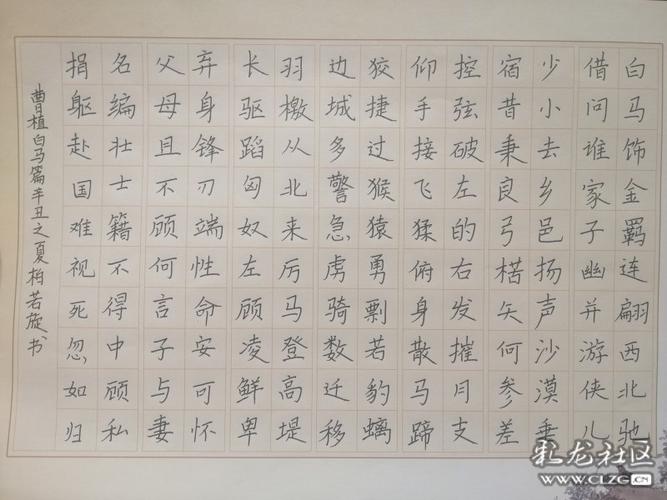 白马饰金羁连翩西北驰
借问谁家子幽并游侠儿
少小去乡邑扬声沙漠垂
宿昔秉良弓楛矢何参差
控弦破左的右发摧月支
仰手接飞猱俯身散马蹄
狡捷过猴猿勇剽若豹螭
边城多警急虏骑数迁移
羽檄从北来厉马登高堤
长驱蹈匈奴左顾凌鲜卑
弃身锋刃端性命安可怀
父母且不顾何言子与妻
名编壮士籍不得中顾私
捐躯赴国难视死忽如归
曹植白马篇辛丑之夏柏若旋书
彩龙社区
CLZG.CN